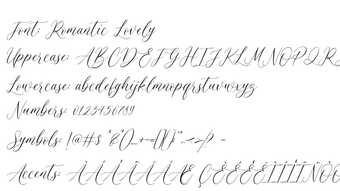 Font: Romantic Lovely
Uppercase: ABCDEFGHIJKLMNOPQR
Lowercase: abcdefghijklmnopqrstuvwxyz
Numbers: 0123456789
Symbols: !@#$
Accents: ÀÁÂÃÄÅÆ ÇÈÉÊËÌÍÎÏÑÒÓ